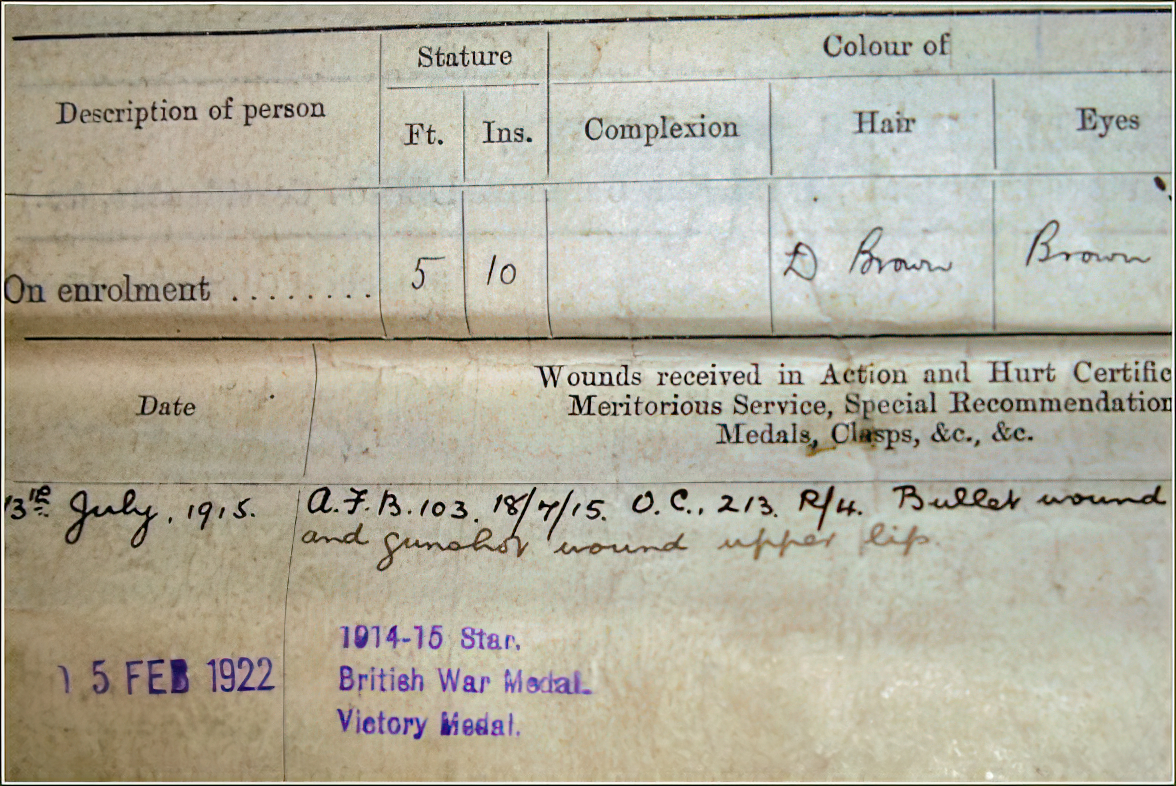 Stature
Colour of
Description of person
Ft.
Ins.
Complexion
Hair
Eyes
On enrolment ........
5
10
D Brown
Brown
Date
Wounds received in Action and Hurt Certific
Meritorious Service, Special Recommendation
Medals, Clasps, &c., &c.
13th July, 1915.
A.F.B. 103. 18/7/15. O.C., 213. R/4. Bullet wound
and gunshot wound upper lip.
15 FEB 1922
1914-15 Star.
British War Medal.
Victory Medal.